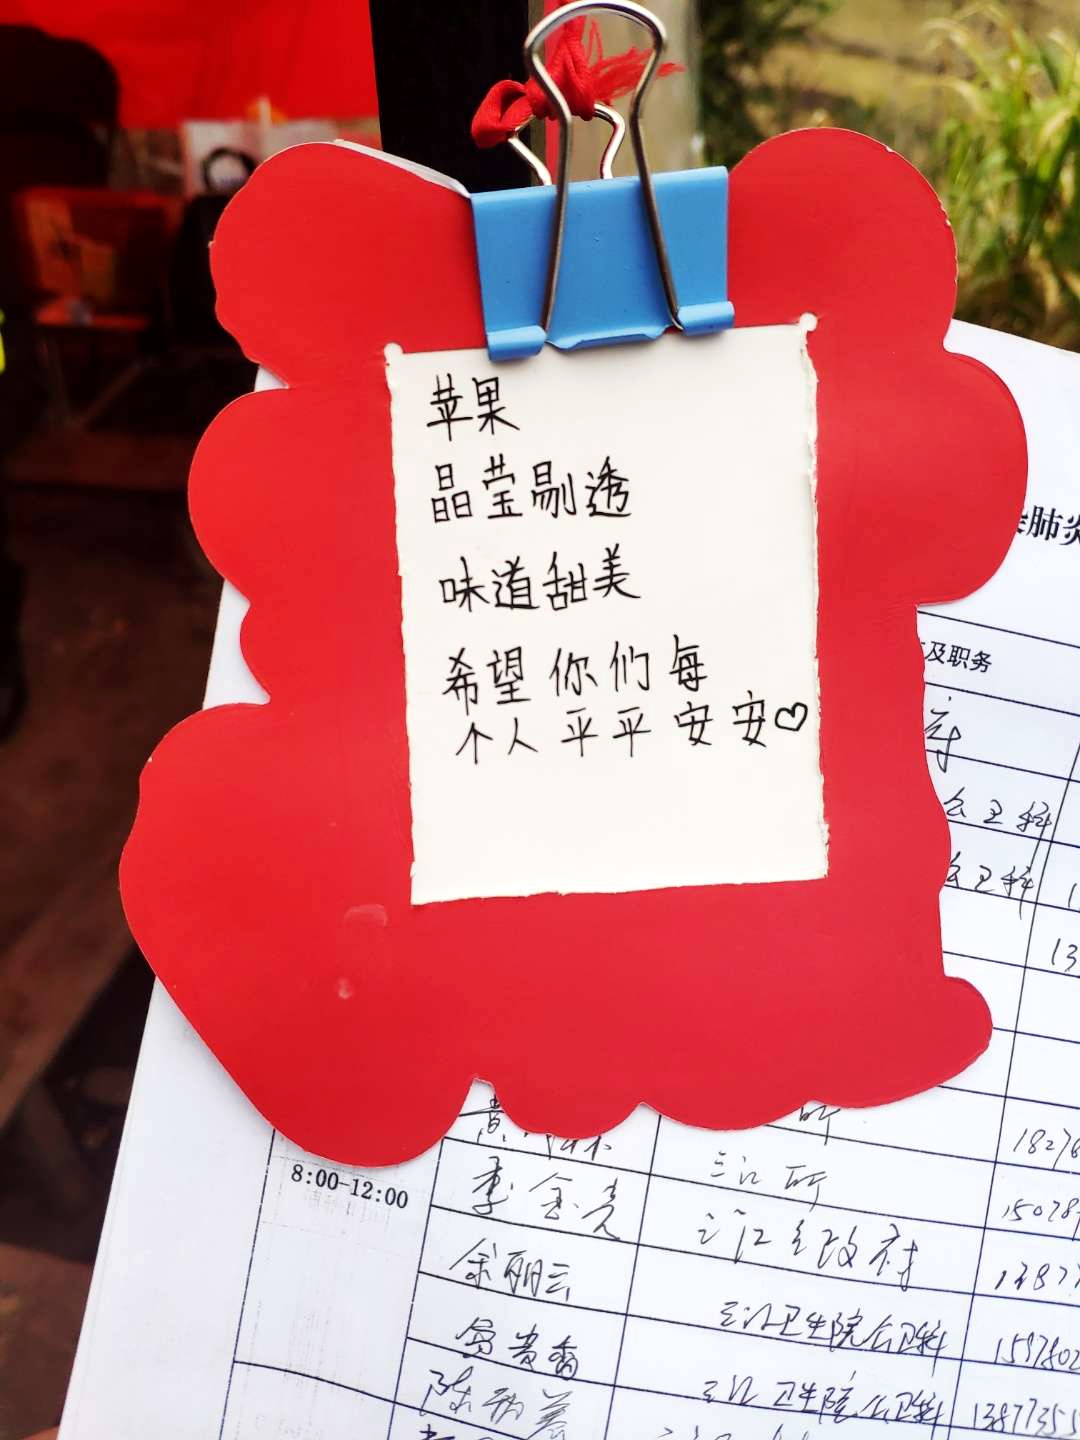 苹果
晶莹剔透
味道甜美
希望你们每
个人平平安安♡
肺炎
及职务
公卫科
公卫科
13
所
1827
8:00-12:00
李金亮
三江所
15078
余丽云
三江乡政府
1387
三江卫生院公卫科
陈
三江卫生院公卫科